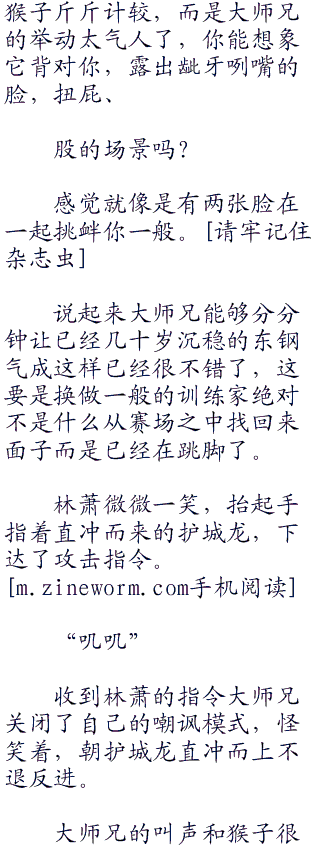 猴子斤斤计较，而是大师兄
的举动太气人了，你能想象
它背对你，露出龇牙咧嘴的
脸，扭屁、
股的场景吗？
感觉就像是有两张脸在
一起挑衅你一般。[请牢记住
杂志虫]
说起来大师兄能够分分
钟让已经几十岁沉稳的东钢
气成这样已经很不错了，这
要是换做一般的训练家绝对
不是什么从赛场之中找回来
面子而是已经在跳脚了。
林萧微微一笑，抬起手
指着直冲而来的护城龙，下
达了攻击指令。
[m.zineworm.com手机阅读]
“叽叽”
收到林萧的指令大师兄
关闭了自己的嘲讽模式，怪
笑着，朝护城龙直冲而上不
退反进。
大师兄的叫声和猴子很